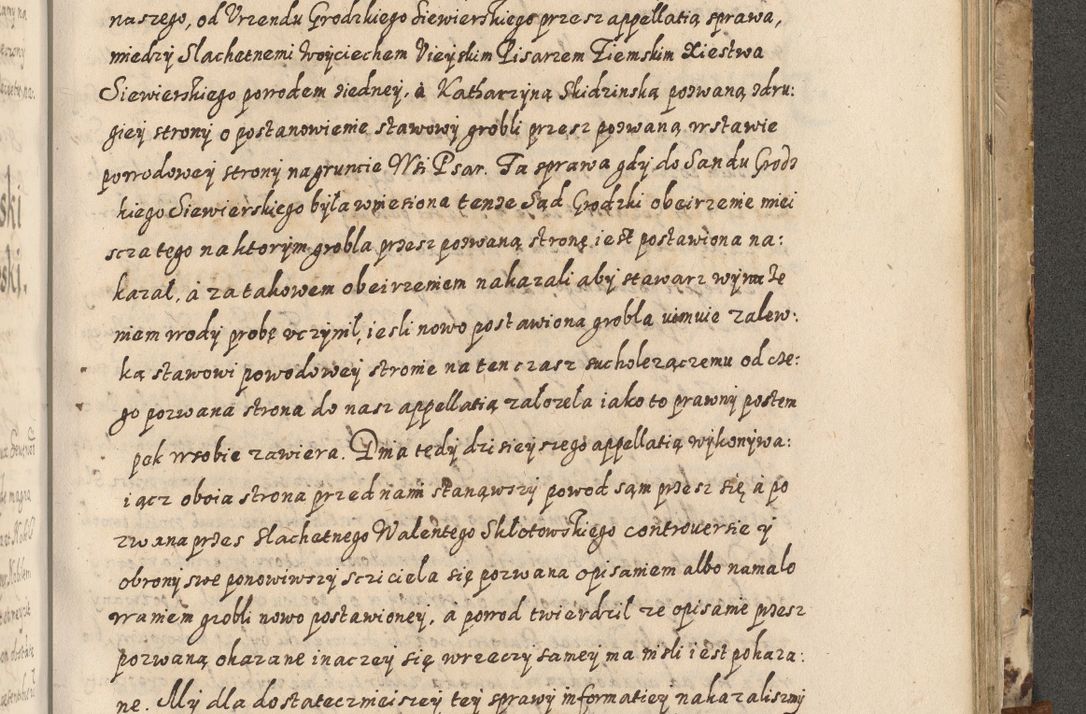 naszego, od Vrzendu Grodzkiego Siewierskiego przesz appellatią sprawa,
miedzy Slachetnemi Woyciechem Pisarzem Ziemskim Xiestwa
Siewierskiego powodem ziedney, a Katharzyną Skidzinską pozwaną zdru:
giey strony o postanowienie stawowy grobli przesz pozwaną wstawie
powodowey strony nagruncie Wsi Psar. Ta sprawa gdy do Sandu Grodz
kiego Siewierskiego była wniesiona tenze Sąd Grodzki obeirzenie miei
scza tego naktorym grobla przesz pozwaną stronę iest postawiona na:
kazał, a zatakowem obeirzeniem nakazali aby stawarz
niem wody probę vczynił, iesli nowo postawiona grobla vimuie zalew:
ką stawowi powodowey stronie na ten czasz sucholezączemu od cze:
go pozwana strona do nasz appellatią załozeła iako to prawny postem
pok wsobie zawiera. Dnia tedy dzisieyszego appellatią wykonywa:
iącz oboia strona przed nami stanąwszy powod sąm przesz się a po
zwana przes Slachetnego Walentego Skłotowskiego controuersie y
obrony swe ponowiwszy sciciela się pozwana opisaniem albo namalo
waniem grobli nowo postawioney, a powod twierdził ze opisanie przesz
pozwaną okazane inaczey się wrzeczy samey ma nisli iest pokaza:
ne. My dla dostatecznieiszey tey sprawy informatiey nakazalismy